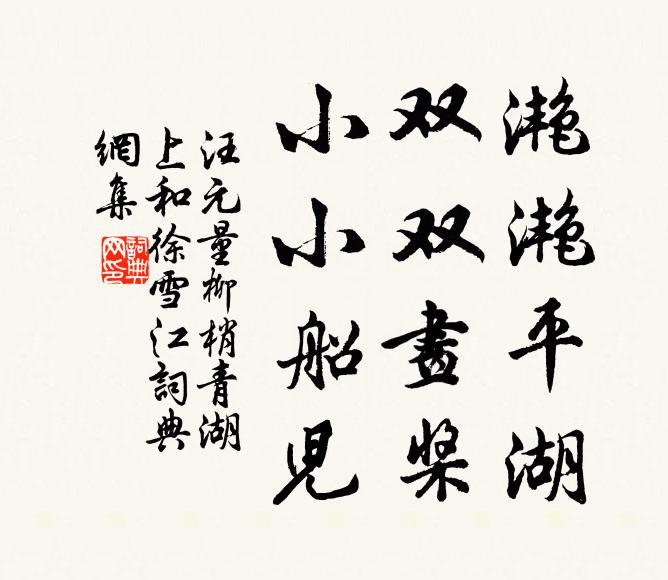 滟滟平湖
双双畫槳
小小船児
汪元量柳梢青湖
上和徐雪江詞典
網集
詞典
网印